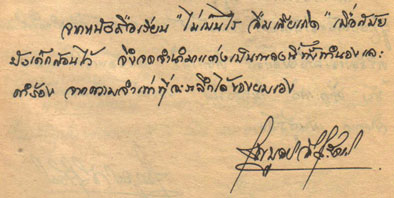 จากหนังสือเรียน "ไม่เป็นไร ลืมเสียเถิด" เมื่อสมัย
ยังเด็กสอนไว้ จึงจดจำนำมาแต่งเป็นเพลงนี้ทั้งทำนองและ
คำร้อง จากความจำเท่าที่ระลึกได้ของผมเอง